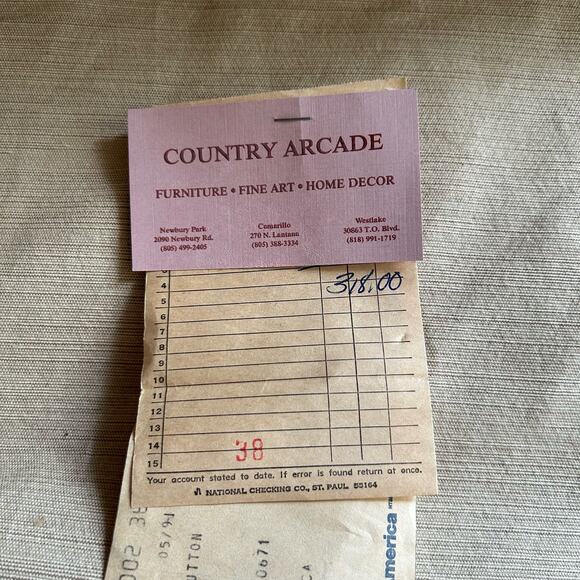 COUNTRY ARCADE
FURNITURE • FINE ART • HOME DECOR
Newbury Park
2090 Newbury Rd.
(805) 499-2405
Camarillo
270 N. Lantana
(805) 388-3334
Westlake
30863 T.O. Blvd.
(818) 991-1719
318.00
4
5
6
7
8
9
10
11
12
13
14
15
38
Your account stated to date. If error is found return at once.
NATIONAL CHECKING CO., ST. PAUL 55164
002 38
05/91
UTTON
0671
CA
merica